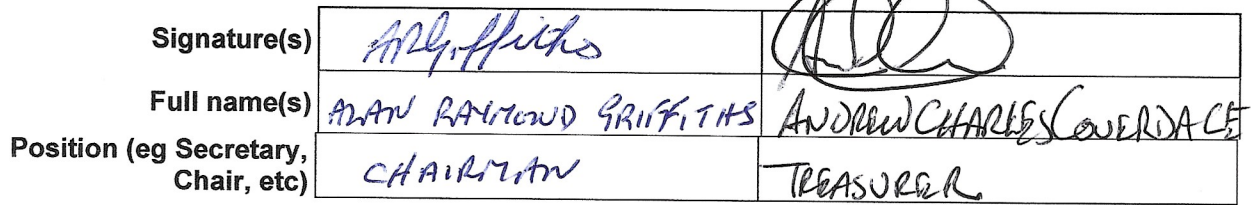 Signature(s) ARGriffiths
Full name(s) ALAN RAYMOND GRIFFITHS ANDREW CHARLES COVERDALE
Position (eg Secretary,
Chair, etc) CHAIRMAN TREASURER